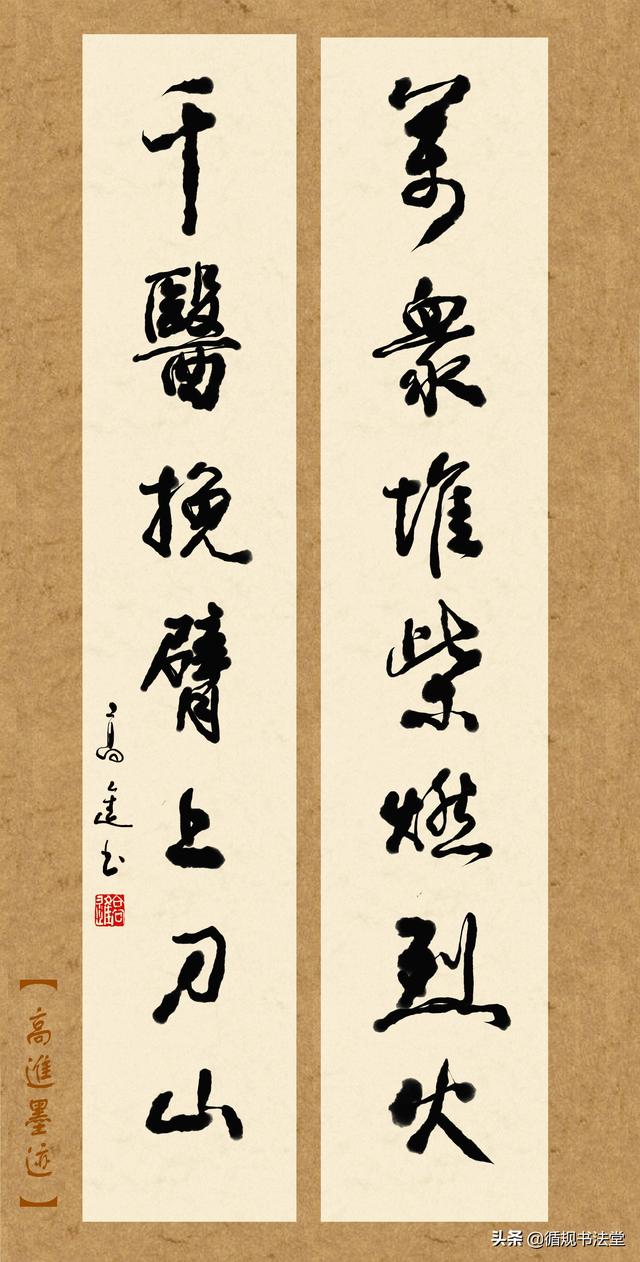 萬衆堆柴燃烈火
千醫挽臂上刀山
高進书
【高進墨迹】
头条 @循规书法堂